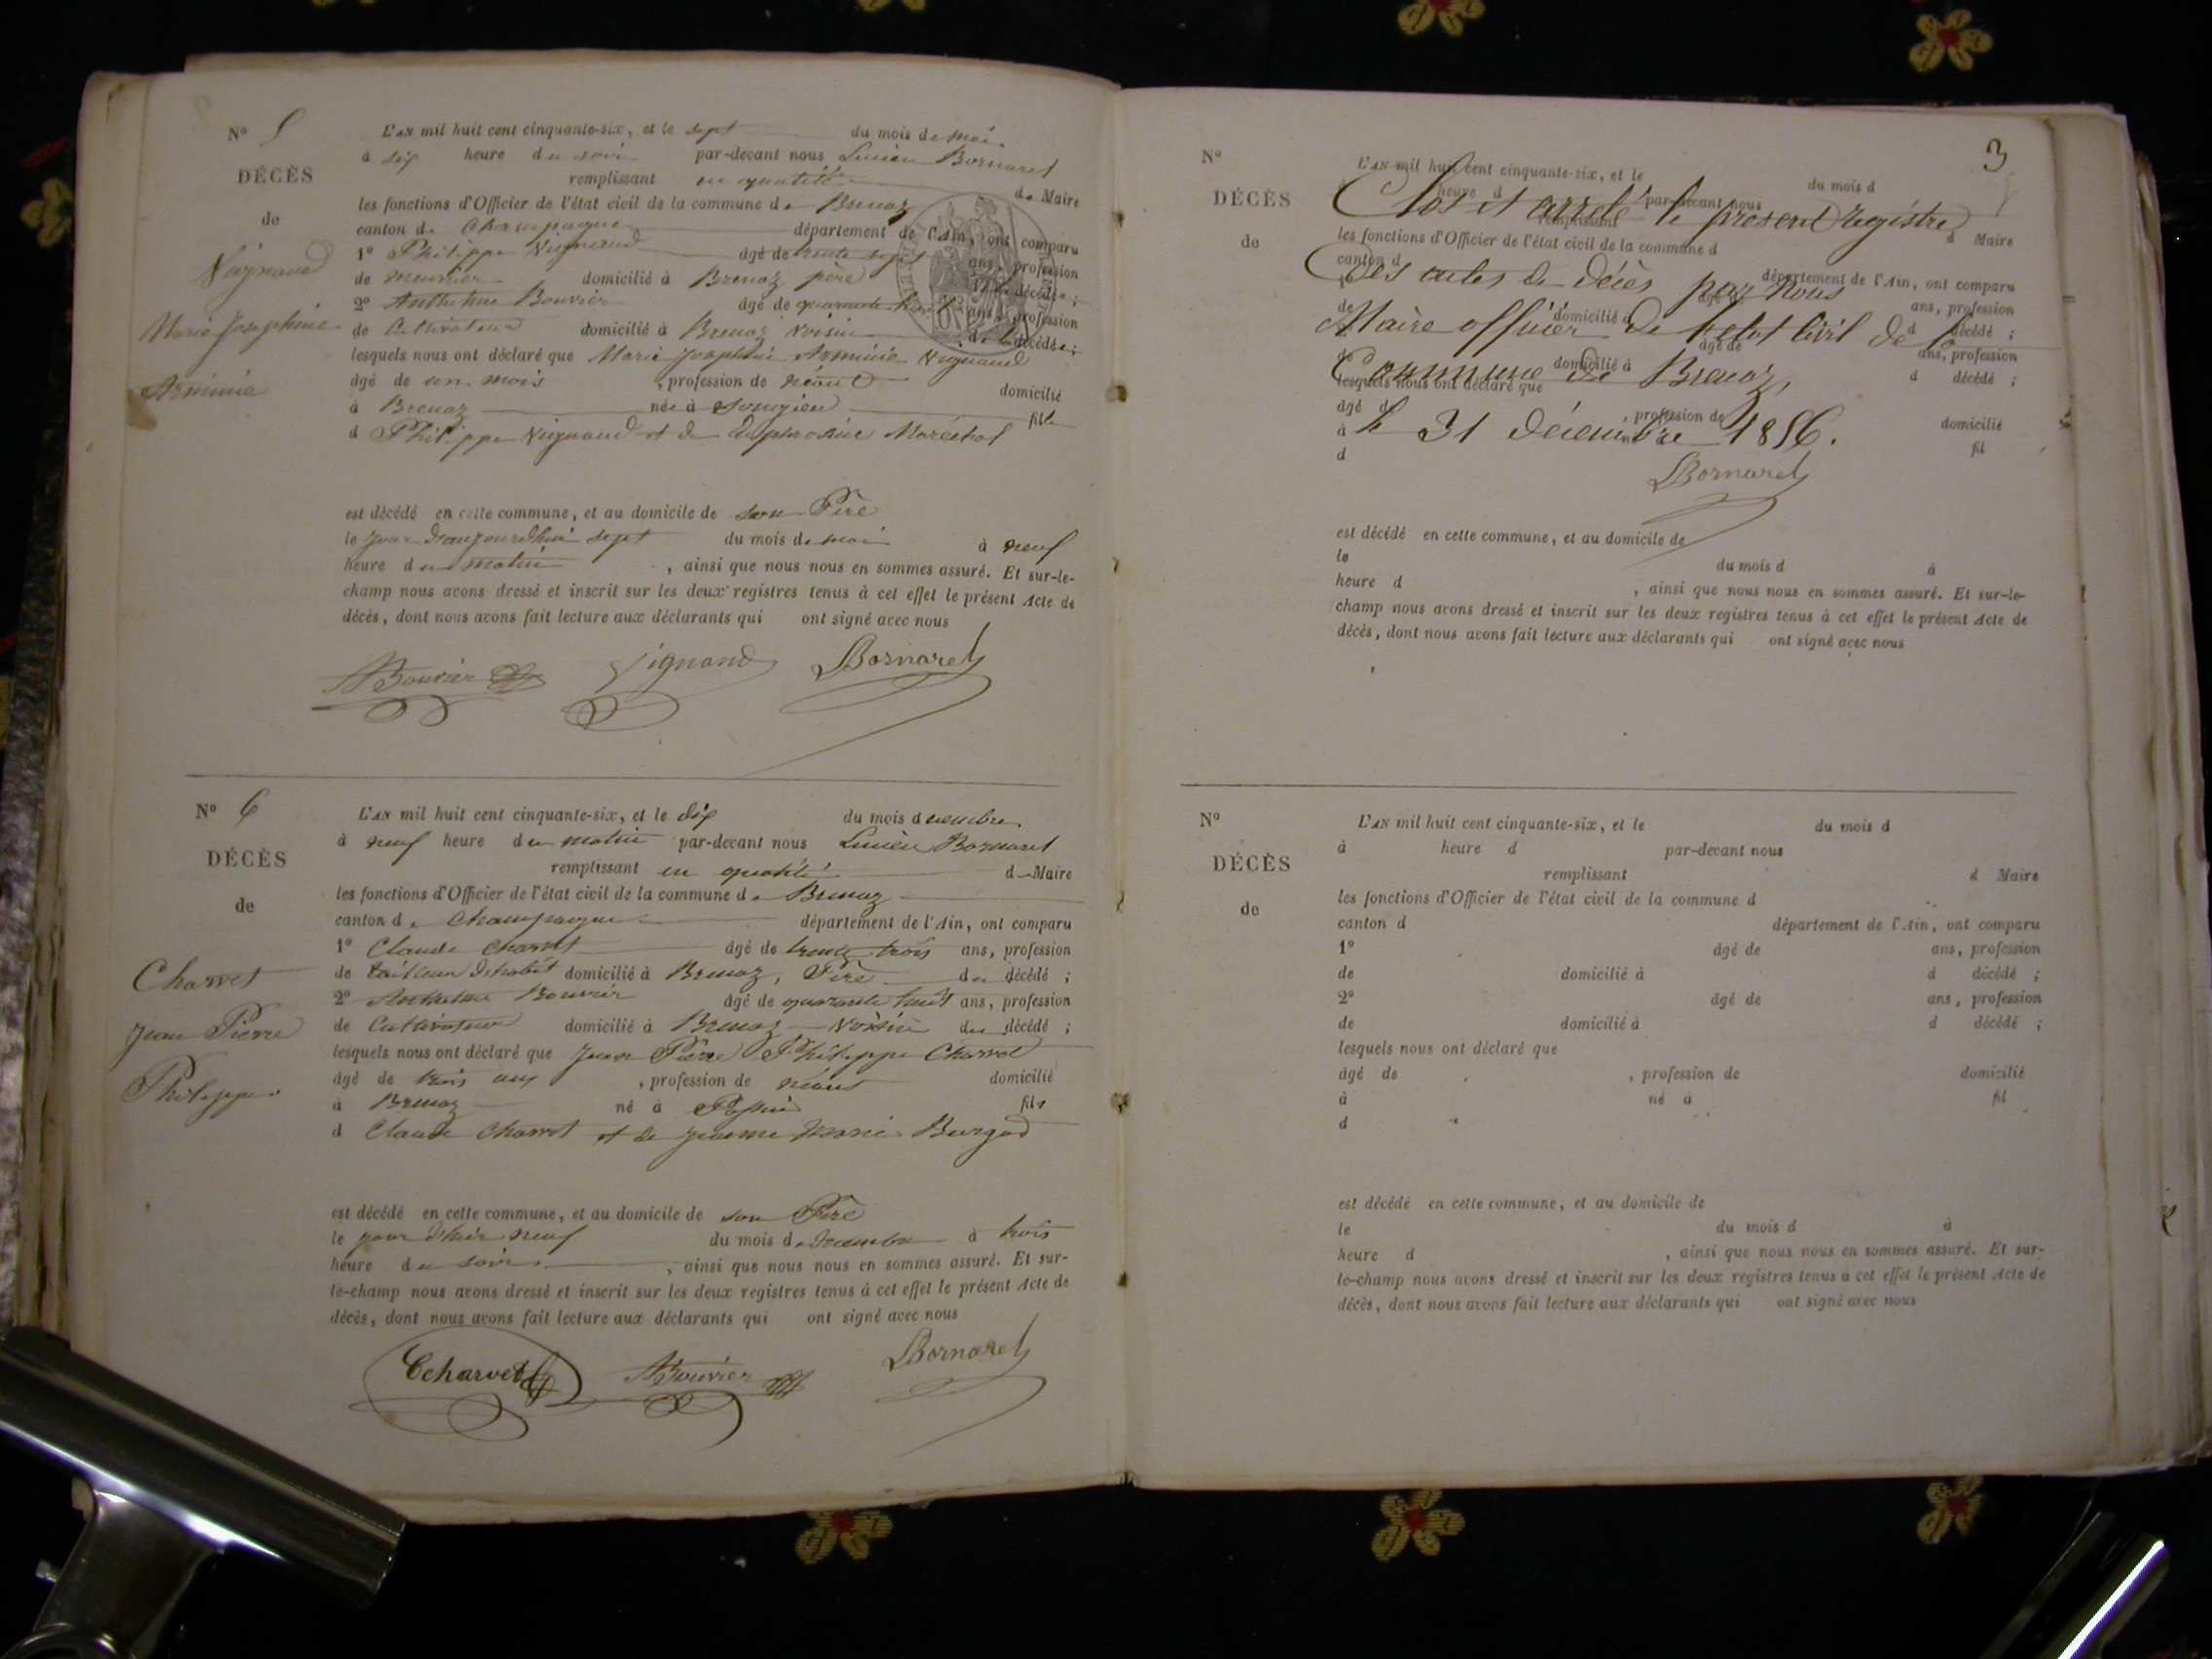 N° 5
DÉCÈS
de
Vignand
Marie Josephine
Arminie
L'AN mil huit cent cinquante-six, et le sept du mois de mai
à six heure du soir par-devant nous Lucien Bornarel
remplissant en qualité de Maire
les fonctions d'Officier de l'état civil de la commune de Brenaz
canton de Champagne département de l'Ain, ont comparu
1° Philippe Vignand âgé de trente sept ans, profession
de meunier domicilié à Brenaz père de la décédée ;
2° Anthelme Bouvier âgé de quarante huit ans, profession
de Cultivateur domicilié à Brenaz Voisin de la décédée ;
lesquels nous ont déclaré que Marie Josephine Arminie Vignand
âgé de un mois , profession de néant domicilié
à Brenaz née à Songieu fille
d Philippe Vignand et de Euphrosine Maréchal
est décédé en cette commune, et au domicile de son Père
le jour d'aujourdhui sept du mois de mai à neuf
heure du matin , ainsi que nous nous en sommes assuré. Et sur-le-
champ nous avons dressé et inscrit sur les deux registres tenus à cet effet le présent Acte de
décès, dont nous avons fait lecture aux déclarants qui ont signé avec nous
ABouvier Vignand LBornarel
N° 6
DÉCÈS
de
Charvet
Jean Pierre
Philippe
L'AN mil huit cent cinquante-six, et le dix du mois d
à neuf heure du matin par-devant nous Lucien Bornarel
remplissant en qualité d Maire
les fonctions d'Officier de l'état civil de la commune de Brenaz
canton de Champagne département de l'Ain, ont comparu
1° Claude Charvet âgé de trente trois ans, profession
de tailleur d'habit domicilié à Brenaz, Père du décédé ;
2° Anthelme Bouvier âgé de quarante huit ans, profession
de Cultivateur domicilié à Brenaz Voisin du décédé ;
lesquels nous ont déclaré que Jean Pierre Philippe Charvet
âgé de trois ans , profession de néant domicilié
à Brenaz né à fils
d Claude Charvet et de Jeanne Marie
est décédé en cette commune, et au domicile de son Père
le jour d'hier neuf du mois de à trois
heure du soir , ainsi que nous nous en sommes assuré. Et sur-
le-champ nous avons dressé et inscrit sur les deux registres tenus à cet effet le présent Acte de
décès, dont nous avons fait lecture aux déclarants qui ont signé avec nous
Ccharvet ABouvier LBornarel
3
N°
DÉCÈS
de
L'AN mil huit cent cinquante-six, et le du mois d
à heure d par-devant nous
Clos et arreté le present Registre
remplissant d Maire
les fonctions d'Officier de l'état civil de la commune d
canton d département de l'Ain, ont comparu
Des actes de Décès par Nous
1° âgé de ans, profession
de domicilié à d décédé ;
Maire officier de l'etat Civil de la
2° âgé de ans, profession
de domicilié à d décédé ;
Commune de Brenaz,
lesquels nous ont déclaré que
âgé de , profession de domicilié
le 31 décembre 1856.
à né à fil
d
LBornarel
est décédé en cette commune, et au domicile de
le du mois d à
heure d , ainsi que nous nous en sommes assuré. Et sur-le-
champ nous avons dressé et inscrit sur les deux registres tenus à cet effet le présent Acte de
décès, dont nous avons fait lecture aux déclarants qui ont signé avec nous
N°
DÉCÈS
de
L'AN mil huit cent cinquante-six, et le du mois d
à heure d par-devant nous
remplissant d Maire
les fonctions d'Officier de l'état civil de la commune d
canton d département de l'Ain, ont comparu
1° âgé de ans, profession
de domicilié à d décédé ;
2° âgé de ans, profession
de domicilié à d décédé ;
lesquels nous ont déclaré que
âgé de , profession de domicilié
à né à fil
d
est décédé en cette commune, et au domicile de
le du mois d à
heure d , ainsi que nous nous en sommes assuré. Et sur-
le-champ nous avons dressé et inscrit sur les deux registres tenus à cet effet le présent Acte de
décès, dont nous avons fait lecture aux déclarants qui ont signé avec nous